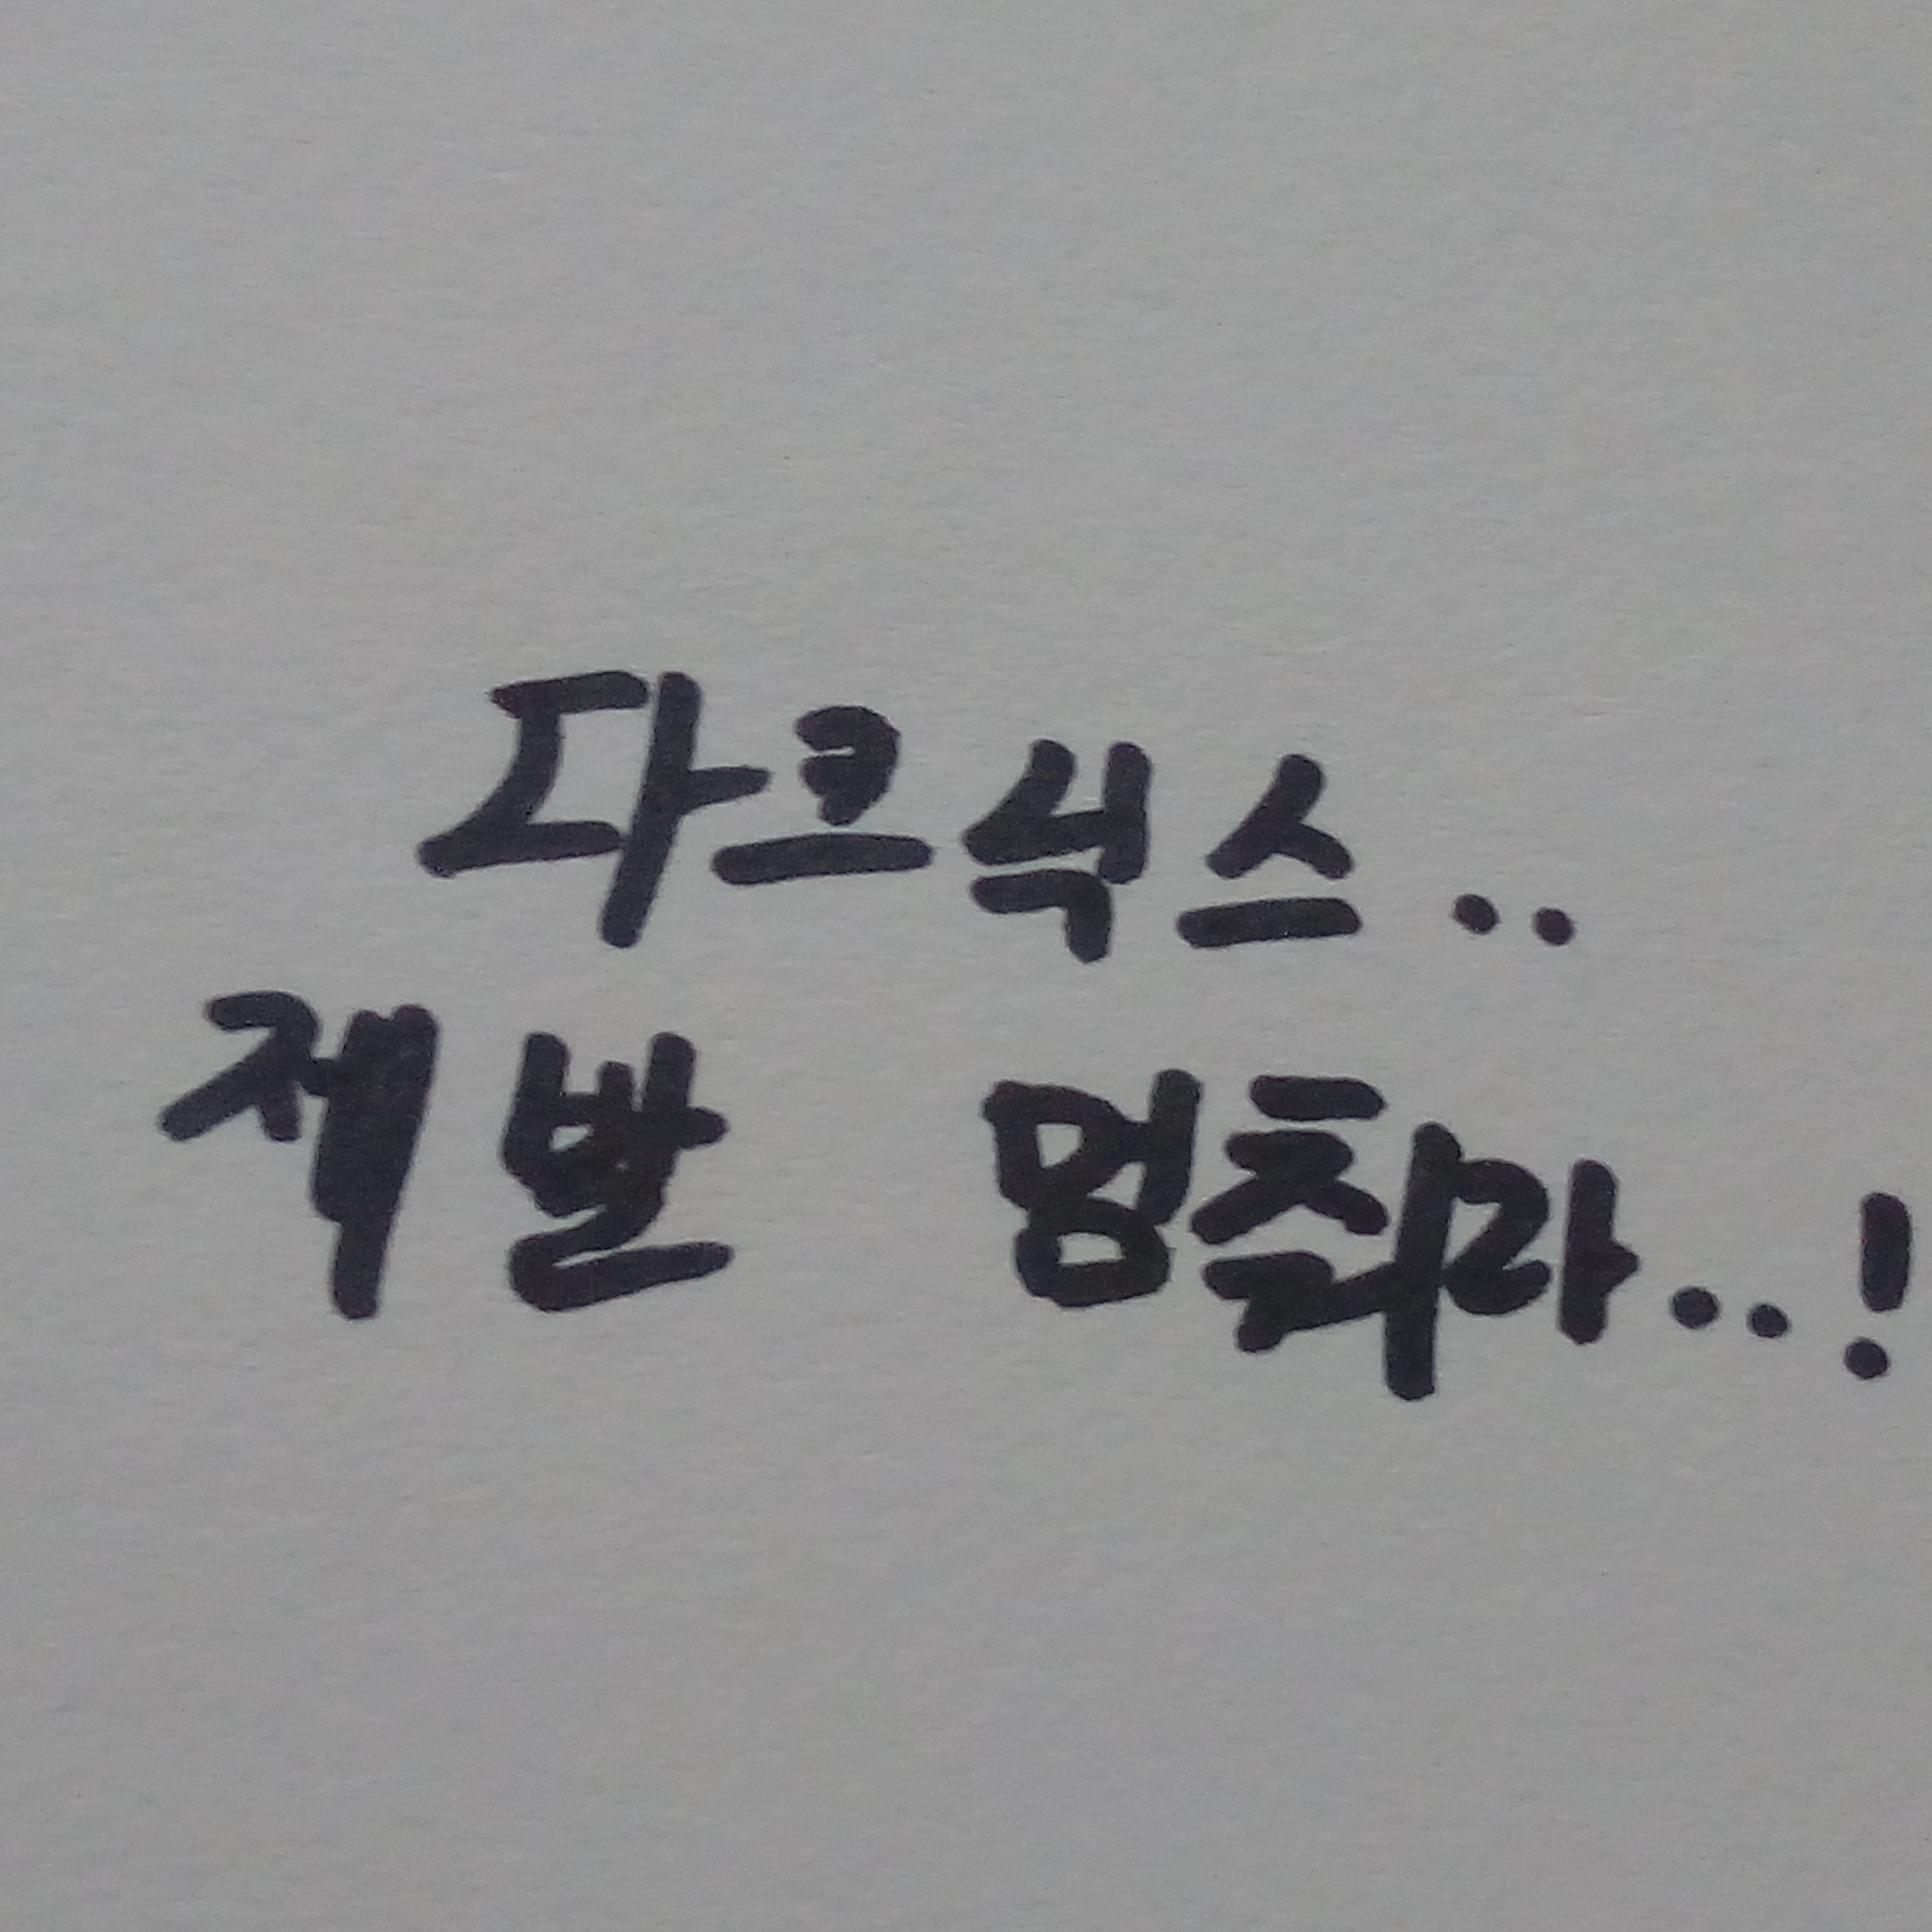 다크식스..
제발 멈춰라..!